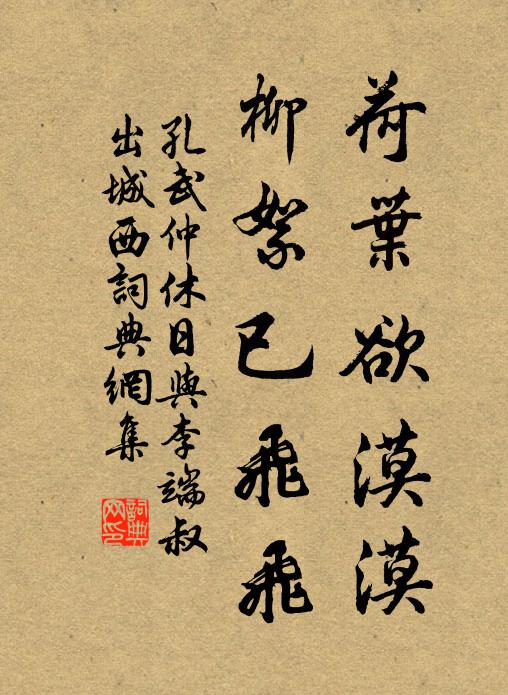 荷葉欲漠漠
柳絮已飛飛
孔武仲休日與李端叔
出城西詞典網集
詞典
网印